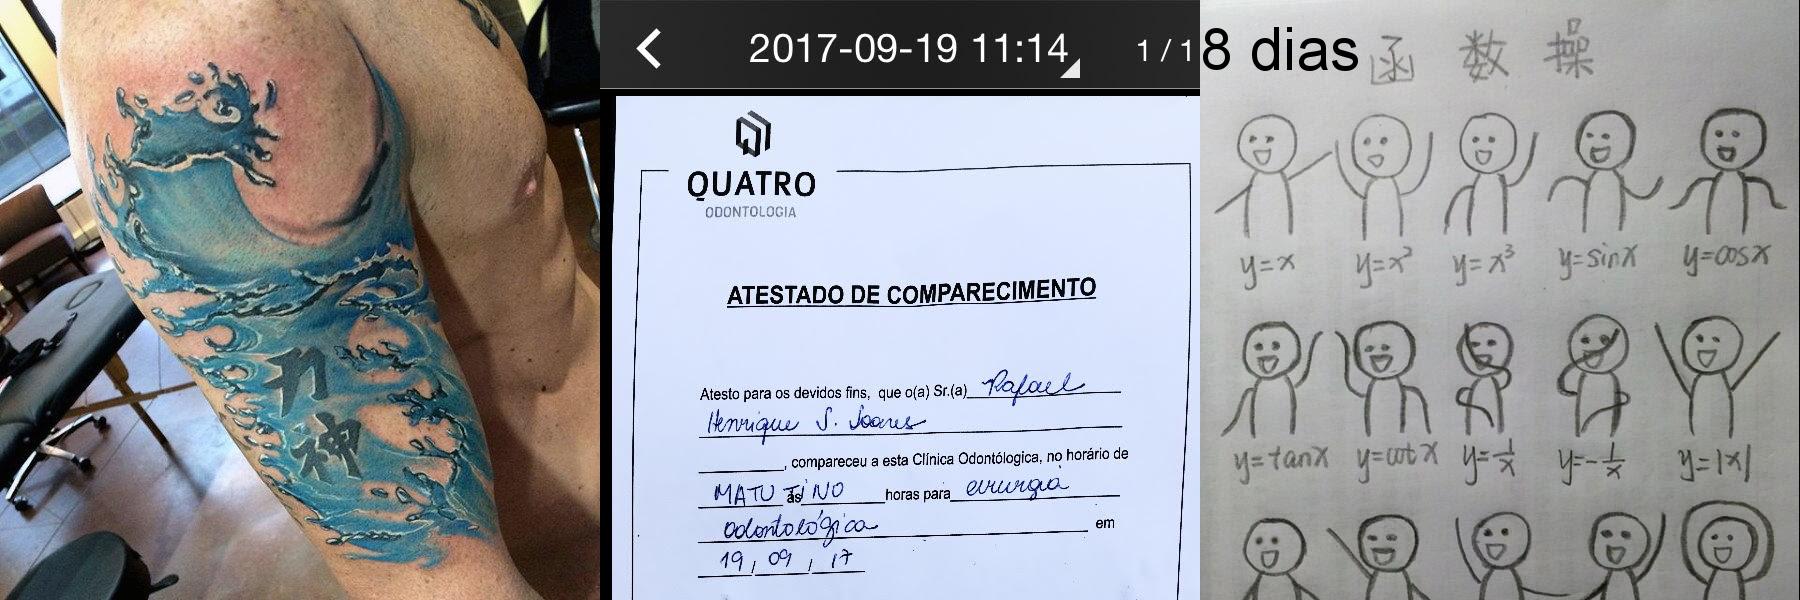 力
神
2017-09-19 11:14
1 / 1
QUATRO
ODONTOLOGIA
ATESTADO DE COMPARECIMENTO
Atesto para os devidos fins, que o(a) Sr.(a) Rafael
Henrique S. Soares
, compareceu a esta Clínica Odontólogica, no horário de
MATUTINO às horas para cirurgia
odontológica em
19 / 09 / 17
8 dias
函 数 操
y=x y=x² y=x³ y=sinx y=cosx
y=tanx y=cotx y=1/x y=-1/x y=|x|